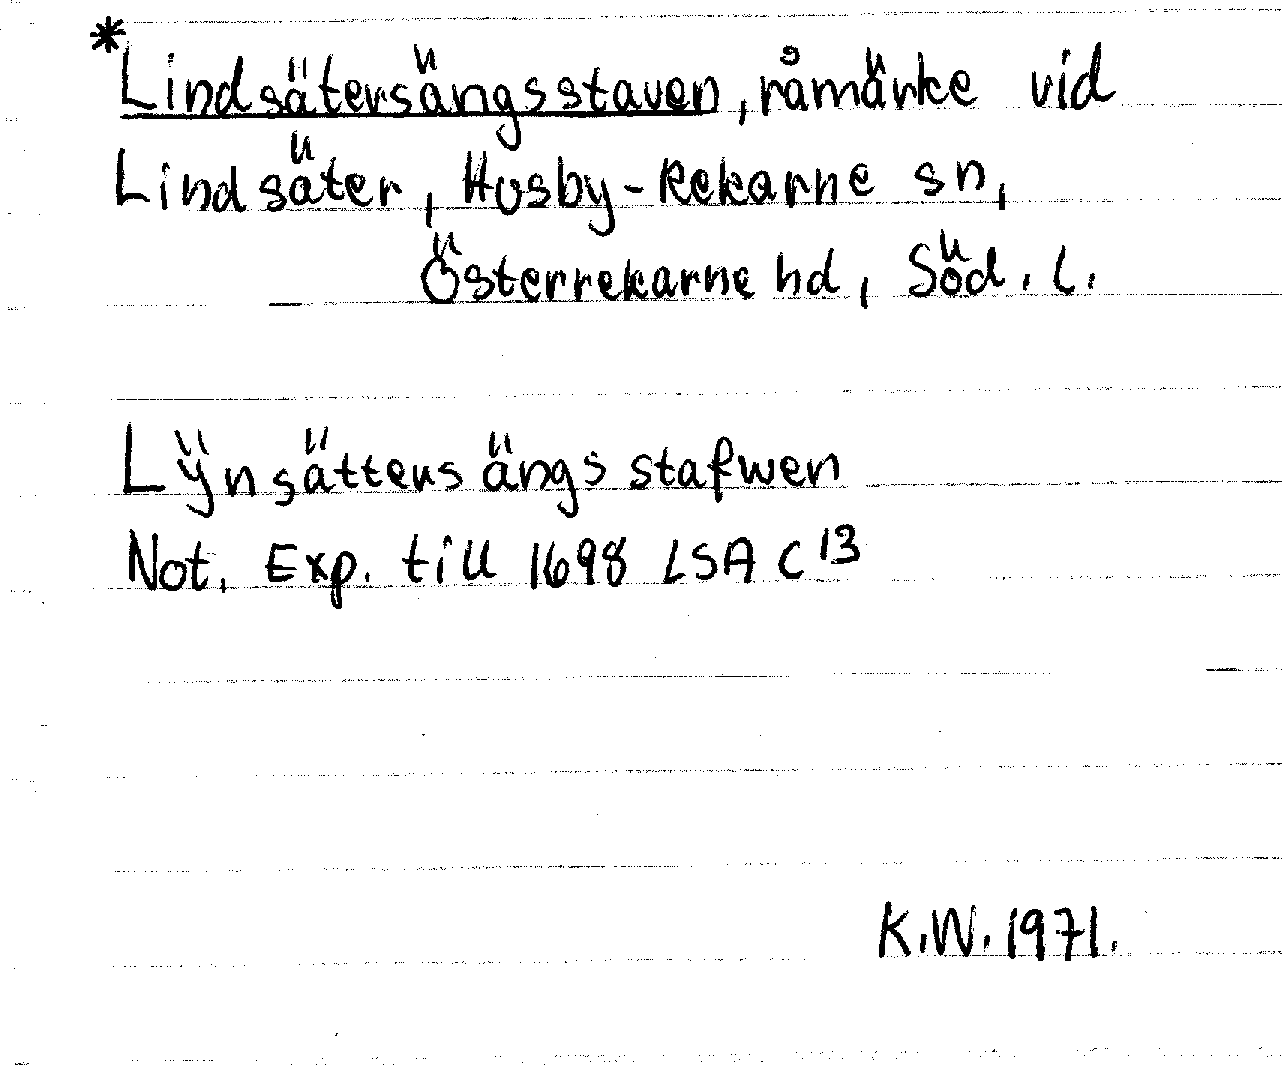 *Lindsätersängsstaven, råmärke vid
Lindsäter, Husby-Rekarne sn,
Österrekarne hd, Söd. l.
Lÿnsätters ängs stafwen
Not. Exp. till 1698 LSA C 13
K.W. 1971.